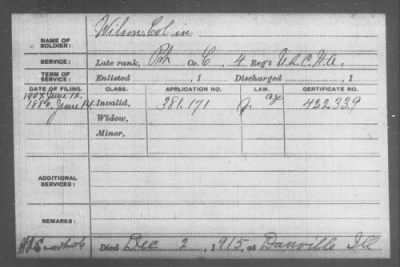 NAME OF SOLDIER: Wilson, Colvin
SERVICE: Late rank, Pvt Co. C, 4 Reg't U.S.C.H.A.
TERM OF SERVICE: Enlisted , 1 Discharged , 1
DATE OF FILING. CLASS. APPLICATION NO. LAW. CERTIFICATE NO.
1907 June 12.
1880, June 14 Invalid, 381.171 422339
Widow,
Minor,
ADDITIONAL SERVICES:
REMARKS:
Died Dec 2, 1915, at Danville Ill